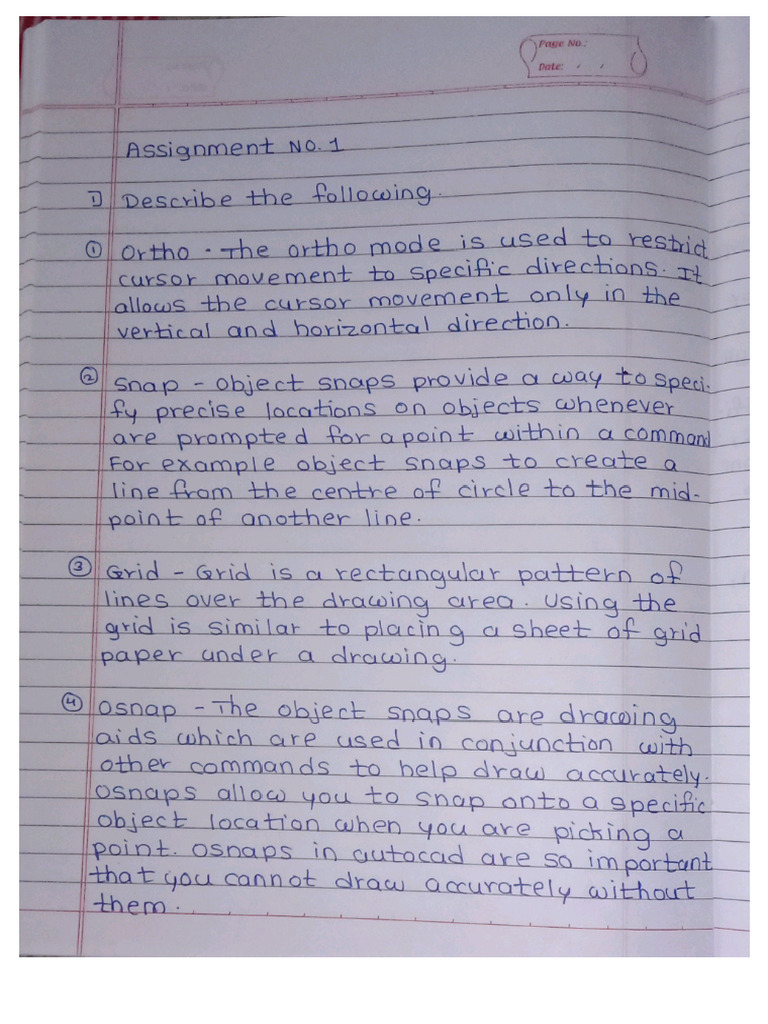 Page No.:
Date: / /
Assignment No. 1
1) Describe the following.
① Ortho - The ortho mode is used to restrict
cursor movement to specific directions. It
allows the cursor movement only in the
vertical and horizontal direction.
② Snap - Object snaps provide a way to speci-
fy precise locations on objects whenever
are prompted for a point within a command
For example object snaps to create a
line from the centre of circle to the mid-
point of another line.
③ Grid - Grid is a rectangular pattern of
lines over the drawing area. Using the
grid is similar to placing a sheet of grid
paper under a drawing.
④ Osnap - The object snaps are drawing
aids which are used in conjunction with
other commands to help draw accurately.
Osnaps allow you to snap onto a specific
object location when you are picking a
point. Osnaps in autocad are so important
that you cannot draw accurately without
them.